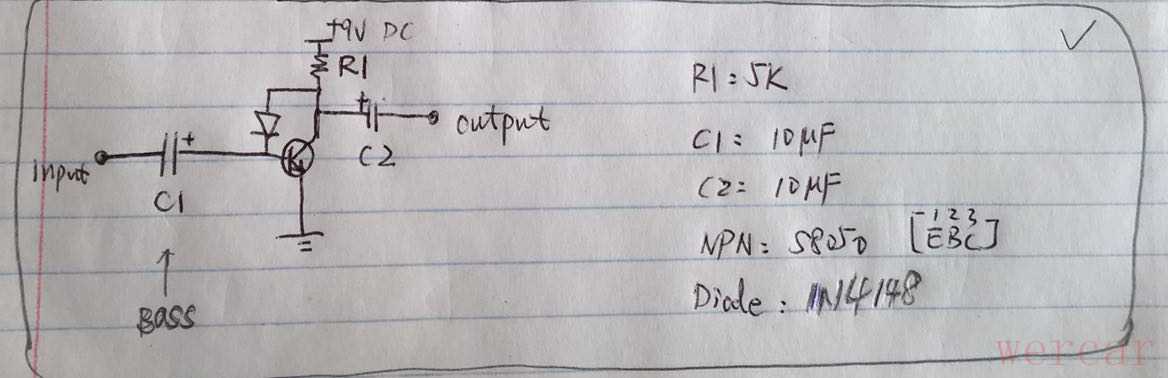 +9V DC
R1
output
C2
input
C1
BASS
R1: 5K
C1: 10μF
C2: 10μF
NPN: S8050 [EBC]
1 2 3
Diode: 1N4148
wercar